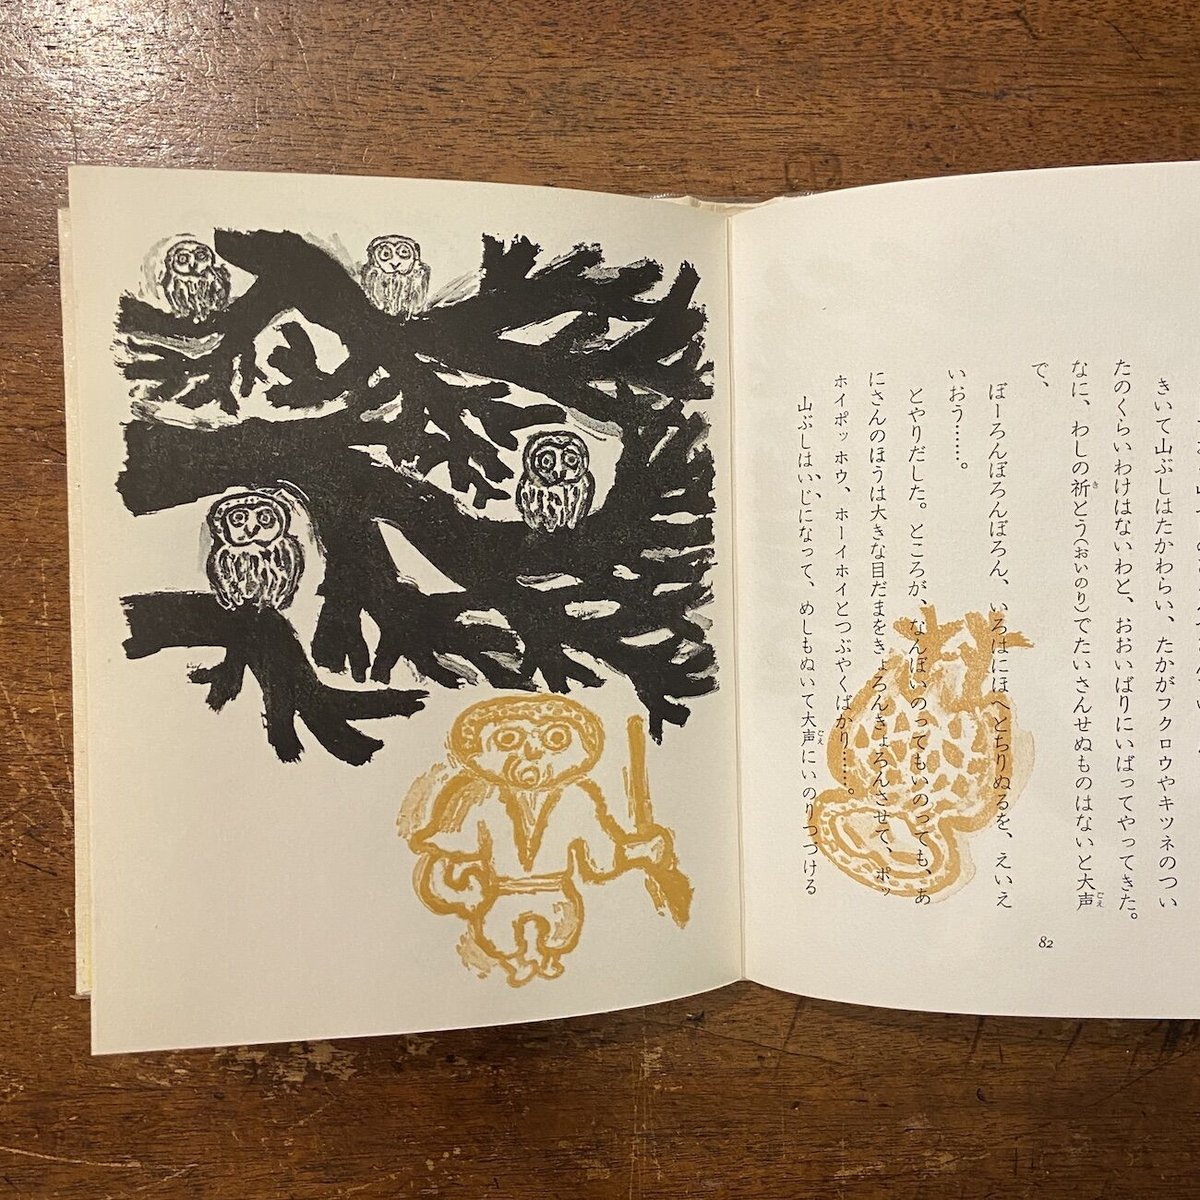 きいて山ぶしはたかわらい、たかがフクロウやキツネのつい
たのくらいわけはないわと、おおいばりにいばってやってきた。
なに、わしの祈とう(おいのり)でたいさんせぬものはないと大声
で、
ぼーろんぼろんぼろん、いろはにほへとちりぬるを、ええ
いおう……。
とやりだした。ところが、なんぼいのってもいのっても、あ
にさんのほうは大きな目だまをきょろんきょろんさせて、ポッ
ホイポッホウ、ホーイホイとつぶやくばかり……。
山ぶしはいじになって、めしもぬいて大声にいのりつづける
82